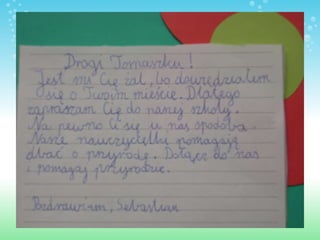 Drogi Tomaszku!
Jest mi Cię żal, bo dowiedziałem
się o Twoim mieście. Dlatego
zapraszam Cię do naszej szkoły.
Na pewno Ci się u nas spodoba.
Nasze nauczycielki pomagają
dbać o przyrodę. Dołącz do nas
i pomagaj przyrodzie.
Pozdrawiam, Sebastian